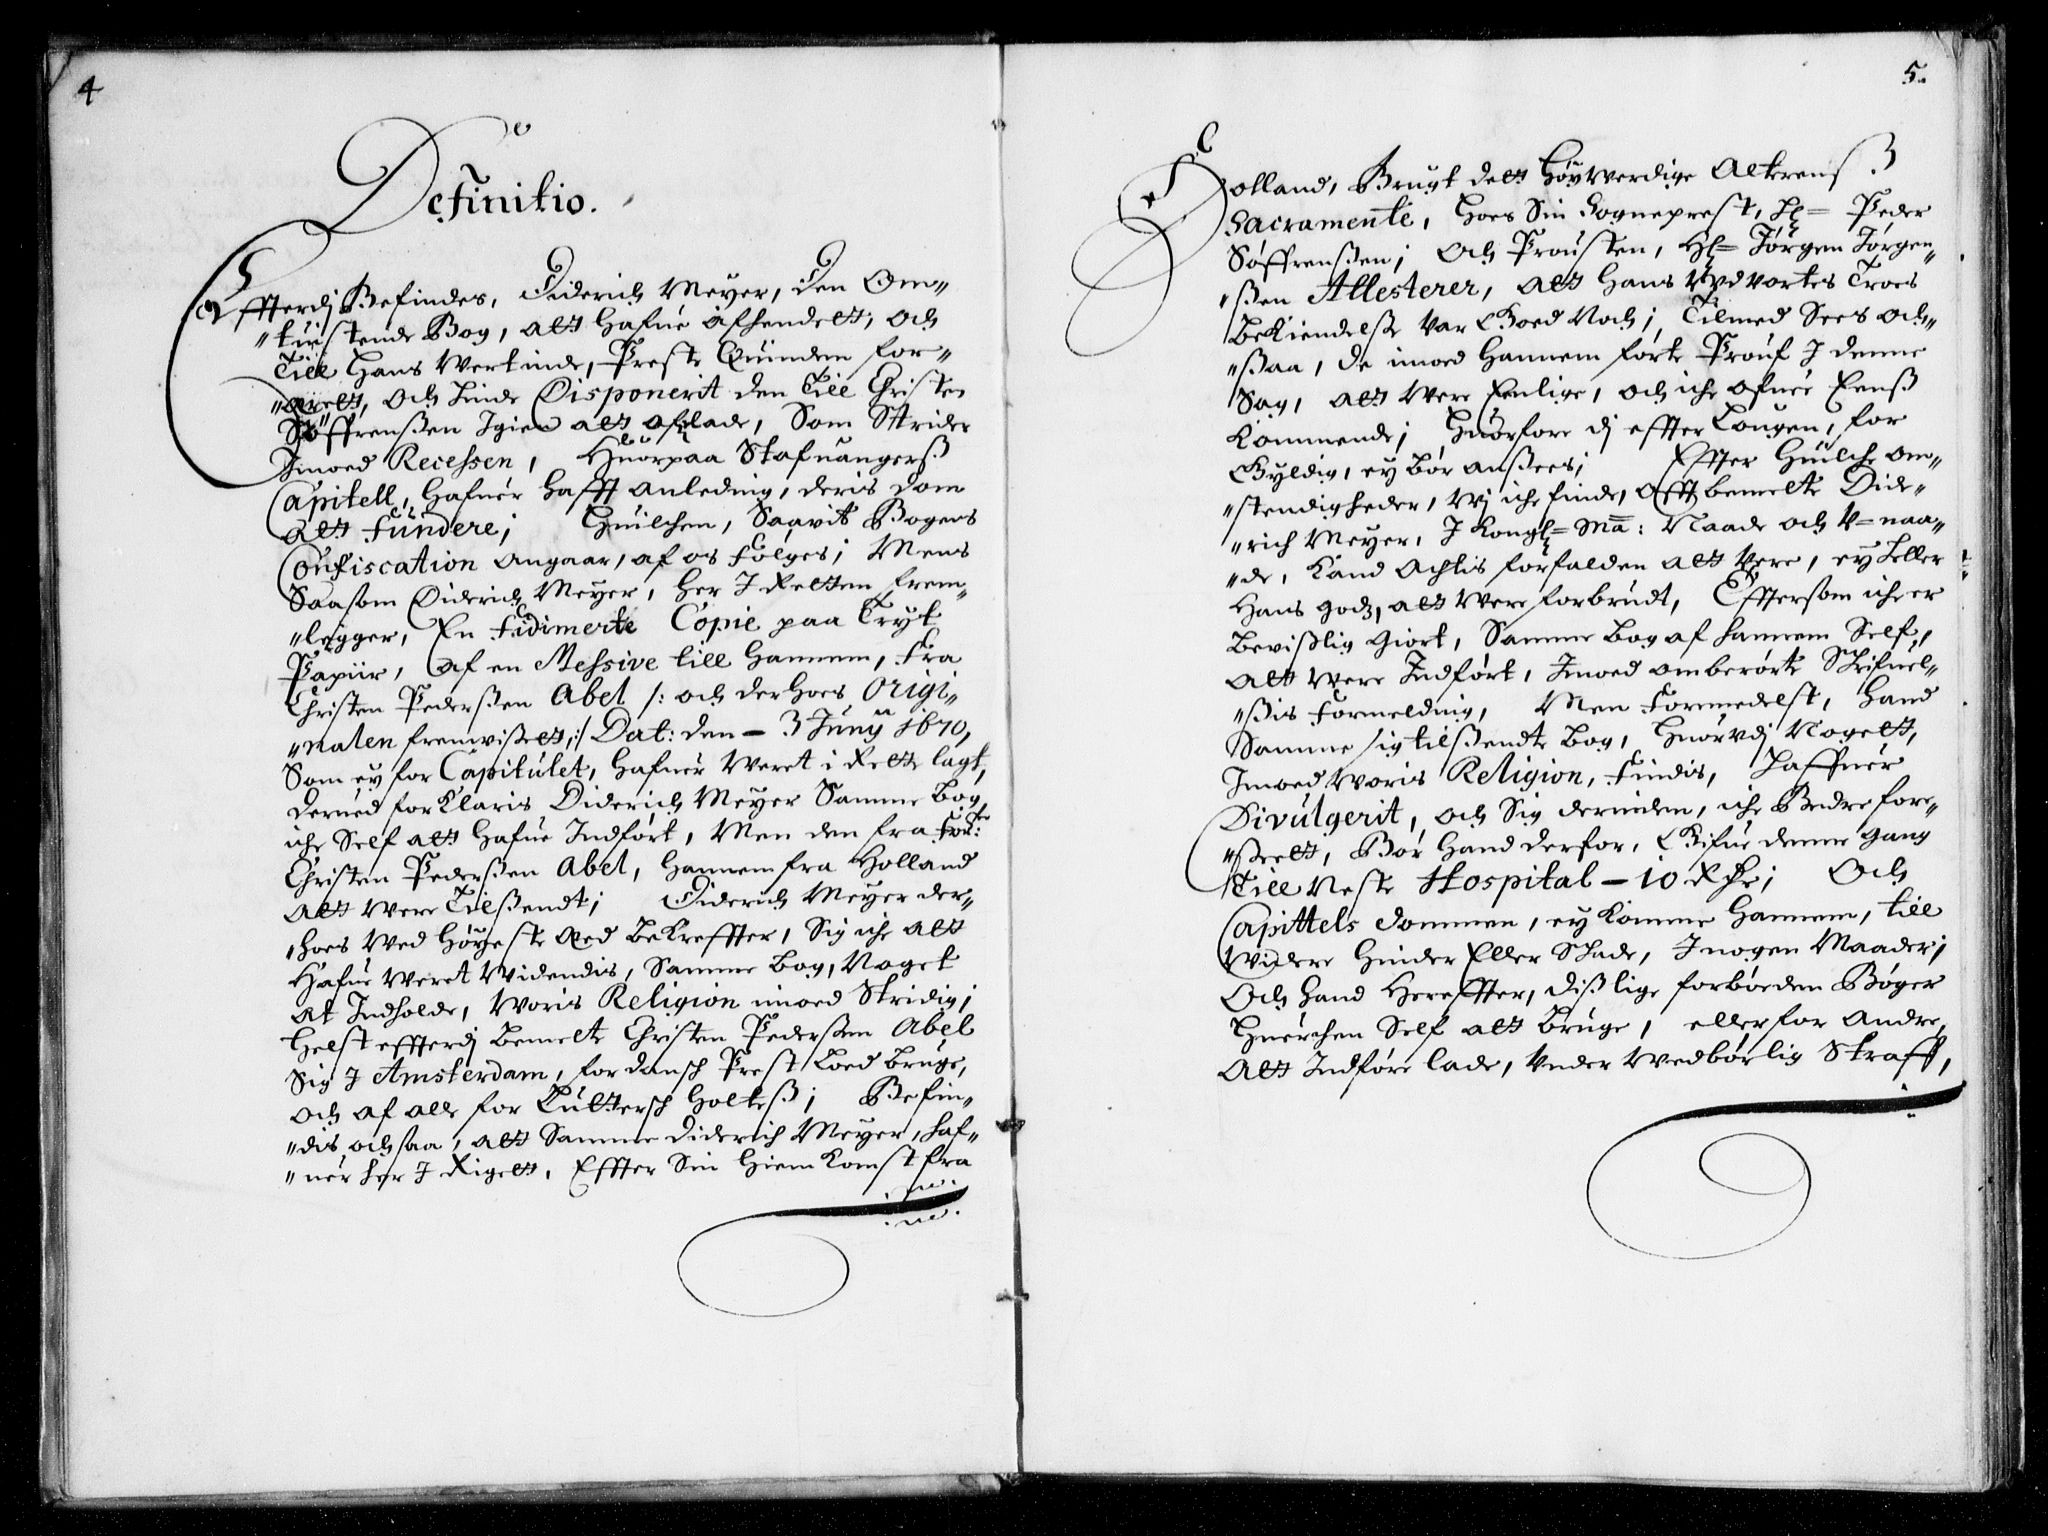 4
Definitio.
Effterdj Befindes, Diderich Meyer, den Om„
„tuistende Bog, att hafue afhendett, och
Till Hans Wertinde, Preste Quinden for„
„ærett, och siude Disponerit den Till Christen
Søffrenßen Igien att aflade, Som Strider
Imoed Recessen, Huorpaa Stafuangerß
Capitell, hafuer hafft anledning, deris dom
att fundere; Huilchen, Saavit Bogens
Confiscation angaar, af os følges; Mens
Saasom Diderich Meyer, her I Retten frem„
„legger, En fidimerte Copie paa Tryt
Papiir, af en Messive till hannem, fra
Christen Pederßen Abel /: och derhoes Origi„
„nalen fremvißet :/ Dat: den – 3 Junij 1670,
Som ey for Capitulet, hafuer Weret i Rette lagt,
Derued forklaris Diderich Meyer Samme Bog
iche Self att hafue Indført, Men den fra for:
Christen Pederßen Abel, hannem fra Holland
att Were Tilßendt; Diderich Meyer der„
„hoes Wed høyeste Eed bekreffter, Sig iche att
Hafue Weret Widendis, Samme bog, Noget
At Indholde, Woris Religion imoed Stridig;
Helst effterdj bemelte Christen Pederßen Abel
Sig I Amsterdam, for dansch Prest loed bruge,
och af alle for Luttersch holtess; Befin„
„dis, och saa, att Samme Diderich Meyer, haf„
„uer her I Riget, Effter Sin Hiem Komst fra
5.
Holland, Brugt dett Høyverdige Alterenß
Sacramente, hoes Sin Sogneprest, Hl= Peder
Søffrenßen; Och Prousten, Hl= Jørgen Jørgen„
„ßen Attesterer, att hans Udvortes Troes
Bekiendelße var Goed Noch; Tilmed Sees och„
„ßaa, de imoed hannem førte Prouf I denne
Sag, att Were Eenlige, och iche ofuer Eenß
Kommende; Huorfore dj effter Lougen, for
Gyldig, ey bør anßees; Effter huilche om„
„stendigheder, Wj iche finde, Offtbemelte Dide„
„rich Meyer, I Kongl= Ma: Naade och V=naa„
„de, Kand Achtis forfalden att Vere, ey heller
Hans godz, att Were forbrudt, Efftersom iche er
Bevißlig giort, Samme bog af hannem Self,
att Were Indført, Imoed omberørte Skrifuel„
„ßis formelding, Men formedelst, hand
Samme sig tilßendte bog, huorvdj Nogett,
Imoed Woris Religion, findis, haffuer
Divulgerit, och Sig derinden, iche Bedre fore„
„ßeett, Bør hand derfor, Gifue denne gang
Till Neste Hospital – 10 Rdr; Och
Capittels dommen, ey Komme hannem, till
Widere hinder Eller Skade, I nogen Maader;
Och hand Hereffter, dißlige forbøeden Bøger
huerchen Self att bruge, eller for andre
att Indføre lade, Under Wedbørlig Straff,